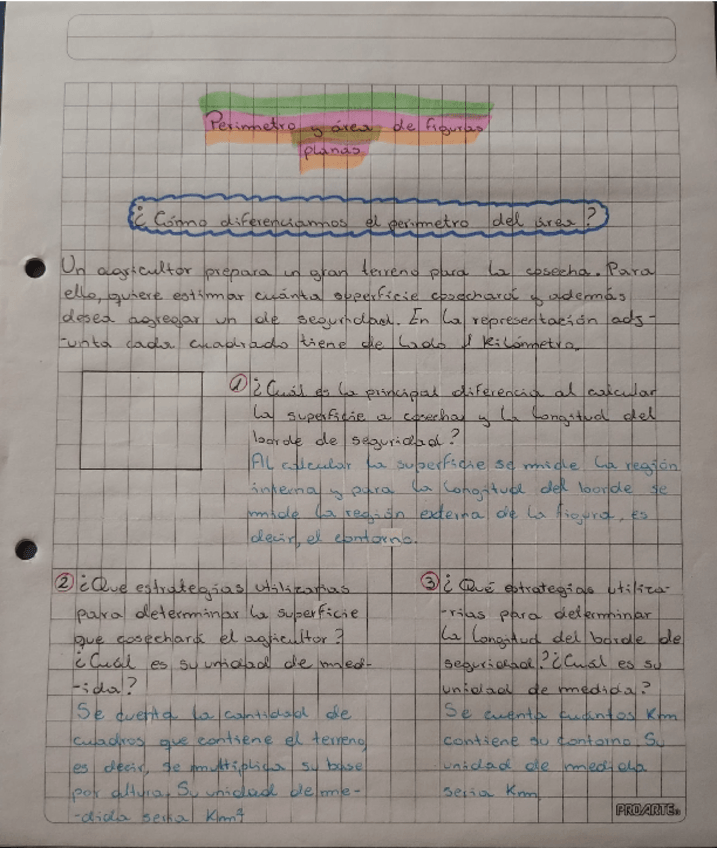 Perimetro y área de figuras
planas
¿Cómo diferenciamos el perimetro del área?
Un agricultor prepara un gran terreno para la cosecha. Para
ello, quiere estimar cuánta superficie cosechará y además
desea agregar un de seguridad. En la representación adj-
-unta cada cuadrado tiene de lado 1 kilómetro.
① ¿Cuál es la principal diferencia al calcular
la superficie a cosechar y la longitud del
borde de seguridad?
Al calcular la superficie se mide la región
interna y para la longitud del borde se
mide la región externa de la figura, es
decir, el contorno.
② ¿Qué estrategias utilizarias
para determinar la superficie
que cosechará el agricultor?
¿Cuál es su unidad de med-
-ida?
Se cuenta la cantidad de
cuadros que contiene el terreno,
es decir, se multiplica su base
por altura. Su unidad de me-
-dida seria Km²
③ ¿Qué estrategias utiliza-
-rias para determinar
la longitud del borde de
seguridad? ¿Cuál es su
unidad de medida?
Se cuenta cuantos Km
contiene su contorno. Su
unidad de medida
seria Km
PROARTE